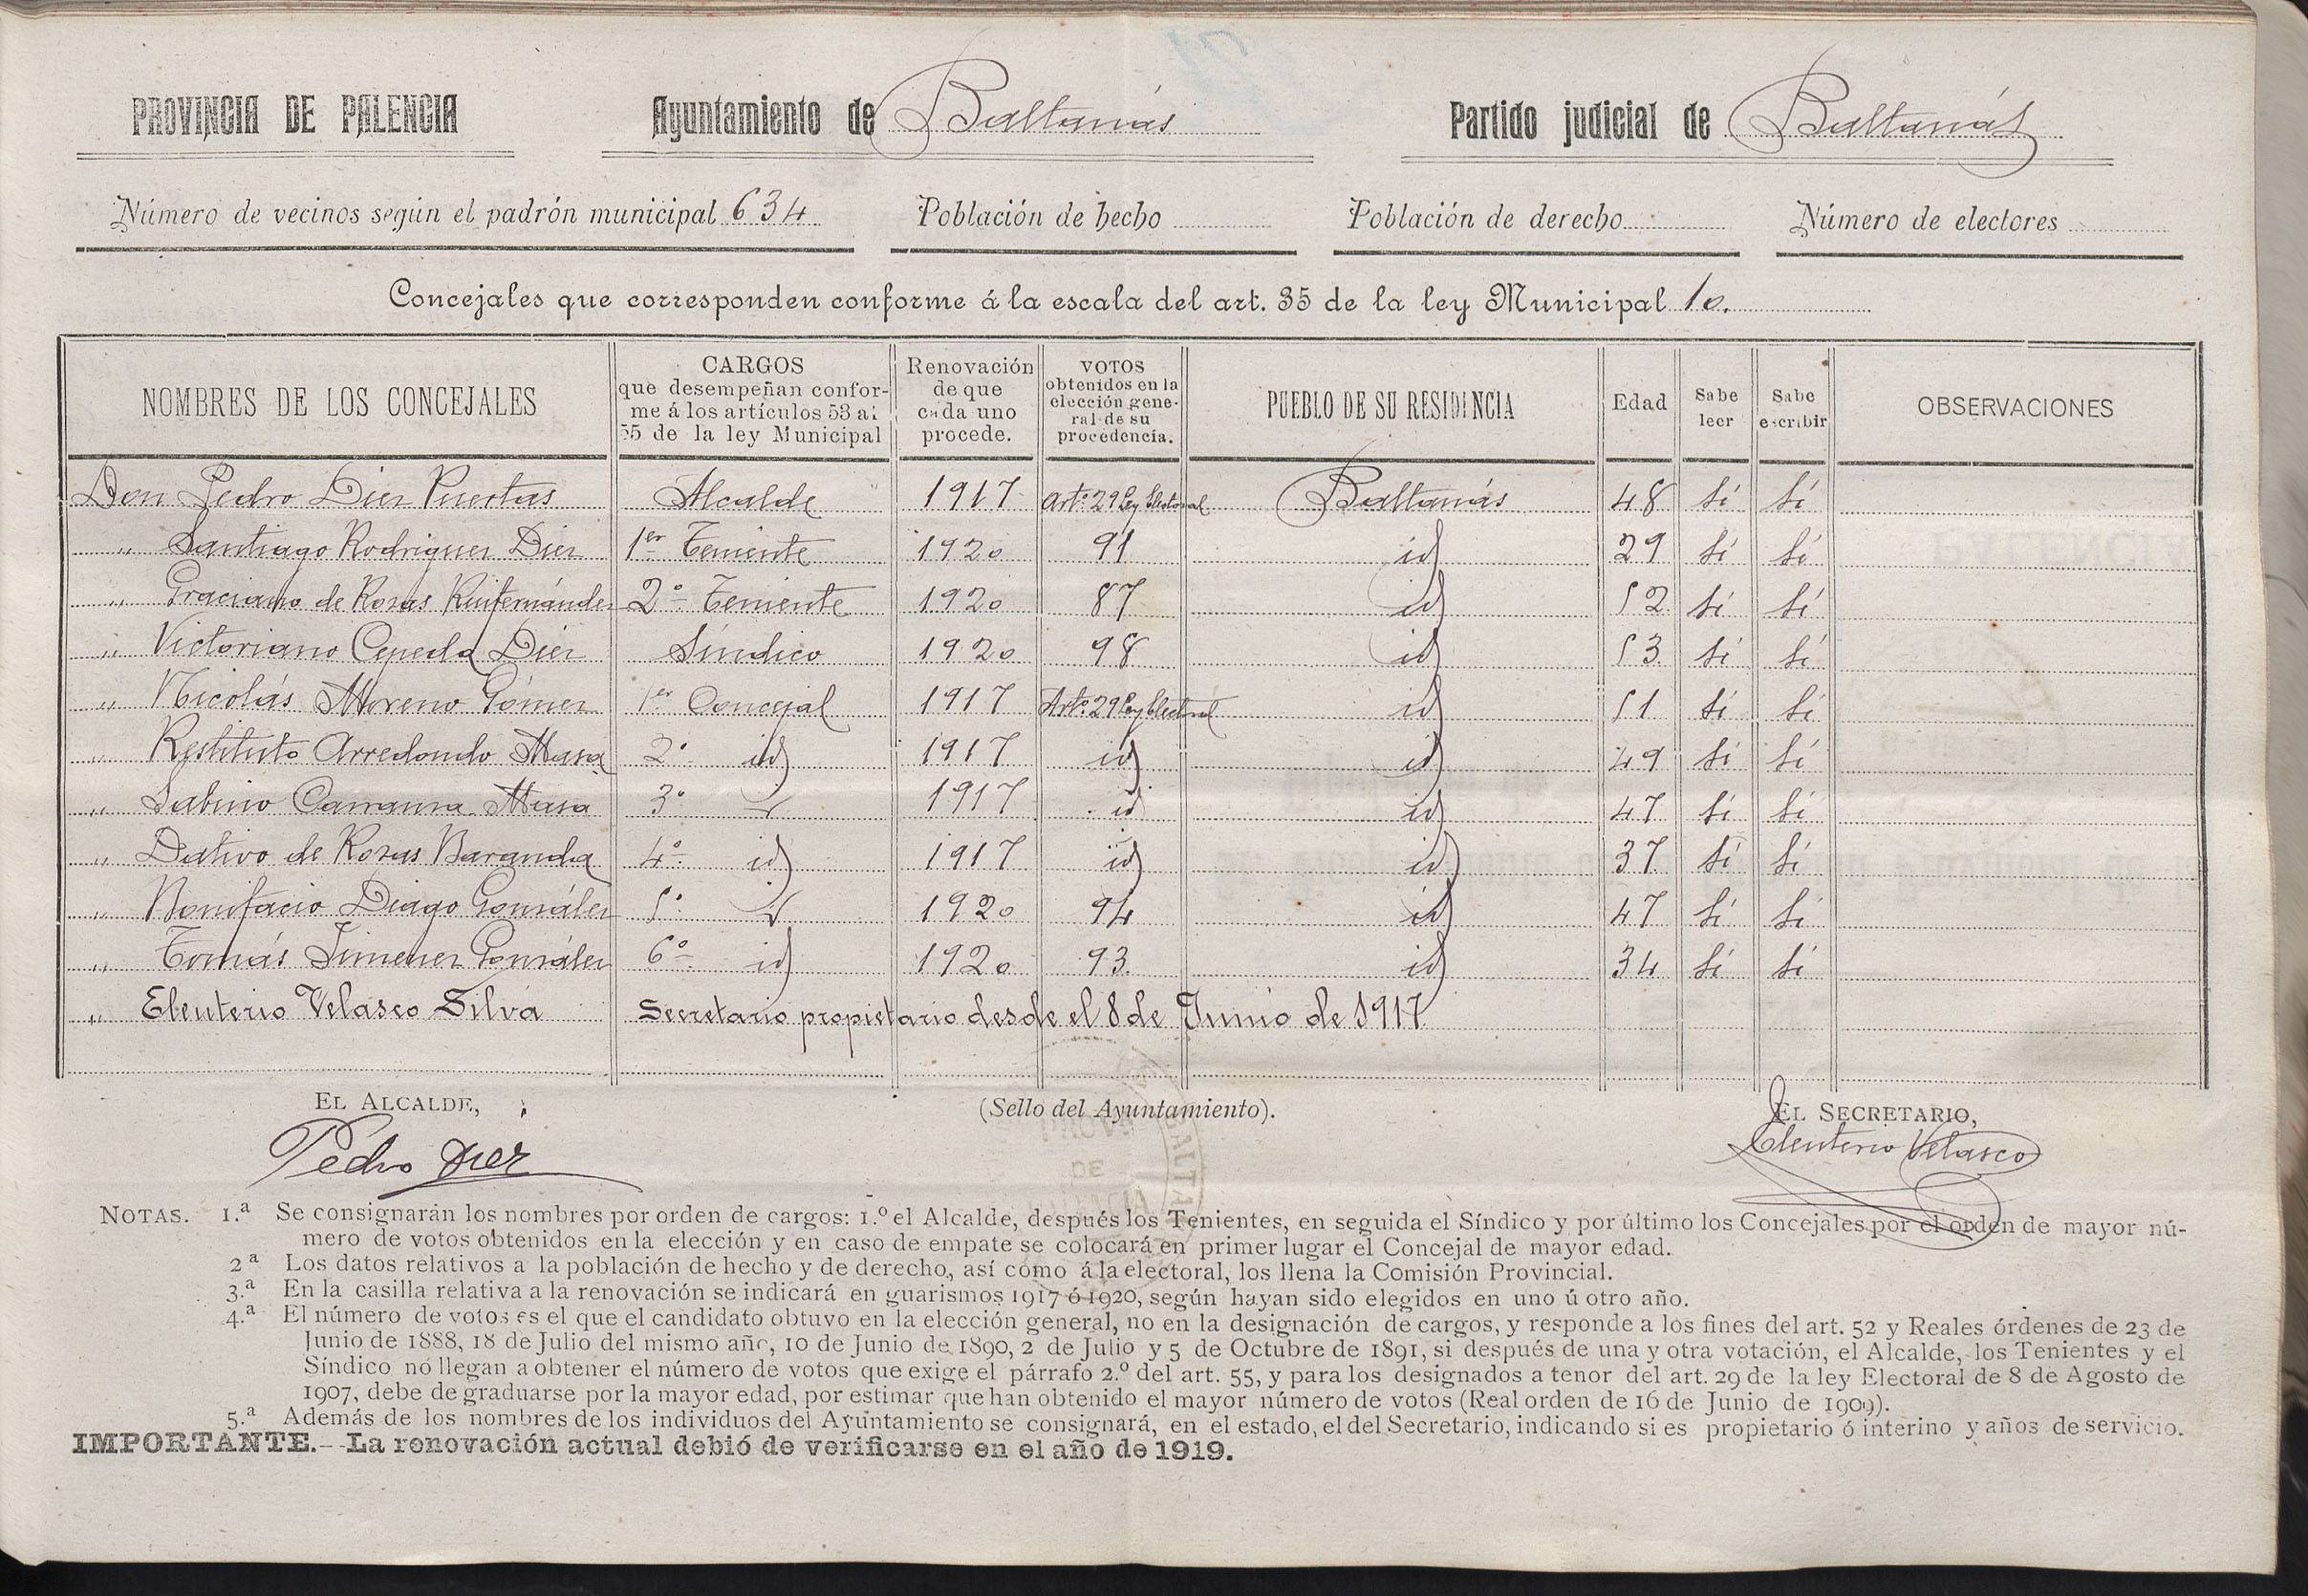 PROVINCIA DE PALENCIA Ayuntamiento de Baltanás Partido judicial de Baltanás
Número de vecinos según el padrón municipal 634 Población de hecho Población de derecho Número de electores
Concejales que corresponden conforme á la escala del art. 35 de la ley Municipal 10.
NOMBRES DE LOS CONCEJALES CARGOS que desempeñan confor- me á los artículos 53 al 55 de la ley Municipal Renovación de que cada uno procede. VOTOS obtenidos en la elección gene- ral de su procedencia. PUEBLO DE SU RESIDENCIA Edad Sabe leer Sabe escribir OBSERVACIONES
Don Pedro Diez Puertas Alcalde 1917 Artº 29 Ley Electoral Baltanás 48 Sí Sí
" Santiago Rodriguez Diez 1er Teniente 1920 91 id 29 Sí Sí
" Graciano de Rozas Ruifernández 2º Teniente 1920 87 id 52 Sí Sí
" Victoriano Cepeda Diez Síndico 1920 98 id 53 Sí Sí
" Nicolás Moreno Gómez 1er Concejal 1917 Artº 29 Ley Electoral id 51 Sí Sí
" Restituto Arredondo Masa 2º id 1917 id id 49 Sí Sí
" Sabino Carranza Masa 3º 1917 id id 47 Sí Sí
" Dativo de Rozas Baranda 4º id 1917 id id 37 Sí Sí
" Bonifacio Diago González 5º 1920 94 id 47 Sí Sí
" Tomás Jimenez González 6º id 1920 93 id 34 Sí Sí
" Eleuterio Velasco Silva Secretario propietario desde el 8 de Junio de 1917
EL ALCALDE, (Sello del Ayuntamiento). EL SECRETARIO,
Pedro Diez Eleuterio Velasco
NOTAS. 1.ª Se consignarán los nombres por orden de cargos: 1.º el Alcalde, después los Tenientes, en seguida el Síndico y por último los Concejales por el orden de mayor nú-
mero de votos obtenidos en la elección y en caso de empate se colocará en primer lugar el Concejal de mayor edad.
2ª Los datos relativos a la población de hecho y de derecho, así como á la electoral, los llena la Comisión Provincial.
3.ª En la casilla relativa a la renovación se indicará en guarismos 1917 ó 1920, según hayan sido elegidos en uno ú otro año.
4.ª El número de votos es el que el candidato obtuvo en la elección general, no en la designación de cargos, y responde a los fines del art. 52 y Reales órdenes de 23 de
Junio de 1888, 18 de Julio del mismo año, 10 de Junio de 1890, 2 de Julio y 5 de Octubre de 1891, si después de una y otra votación, el Alcalde, los Tenientes y el
Síndico no llegan a obtener el número de votos que exige el párrafo 2.º del art. 55, y para los designados a tenor del art. 29 de la ley Electoral de 8 de Agosto de
1907, debe de graduarse por la mayor edad, por estimar que han obtenido el mayor número de votos (Real orden de 16 de Junio de 1909).
5.ª Además de los nombres de los individuos del Ayuntamiento se consignará, en el estado, el del Secretario, indicando si es propietario ó interino y años de servicio.
IMPORTANTE.--La renovación actual debió de verificarse en el año de 1919.